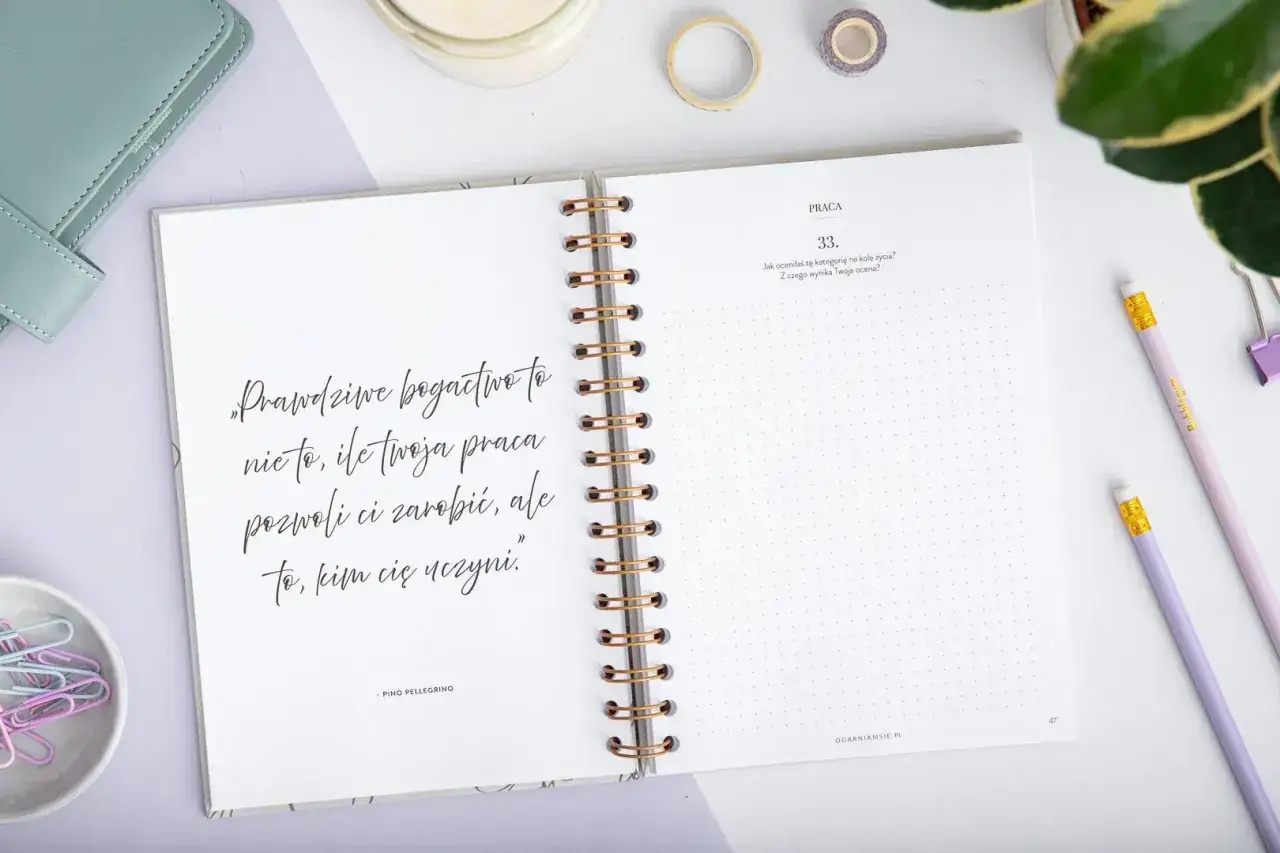 „Prawdziwe bogactwo to
nie to, ile twoja praca
pozwoli ci zarobić, ale
to, kim cię uczyni.”
- PINO PELLEGRINO
PRACA
33.
Jak oceniłaś tę kategorię na kole życia?
Z czego wynika Twoja ocena?
OGARNIAMSIE.PL
47